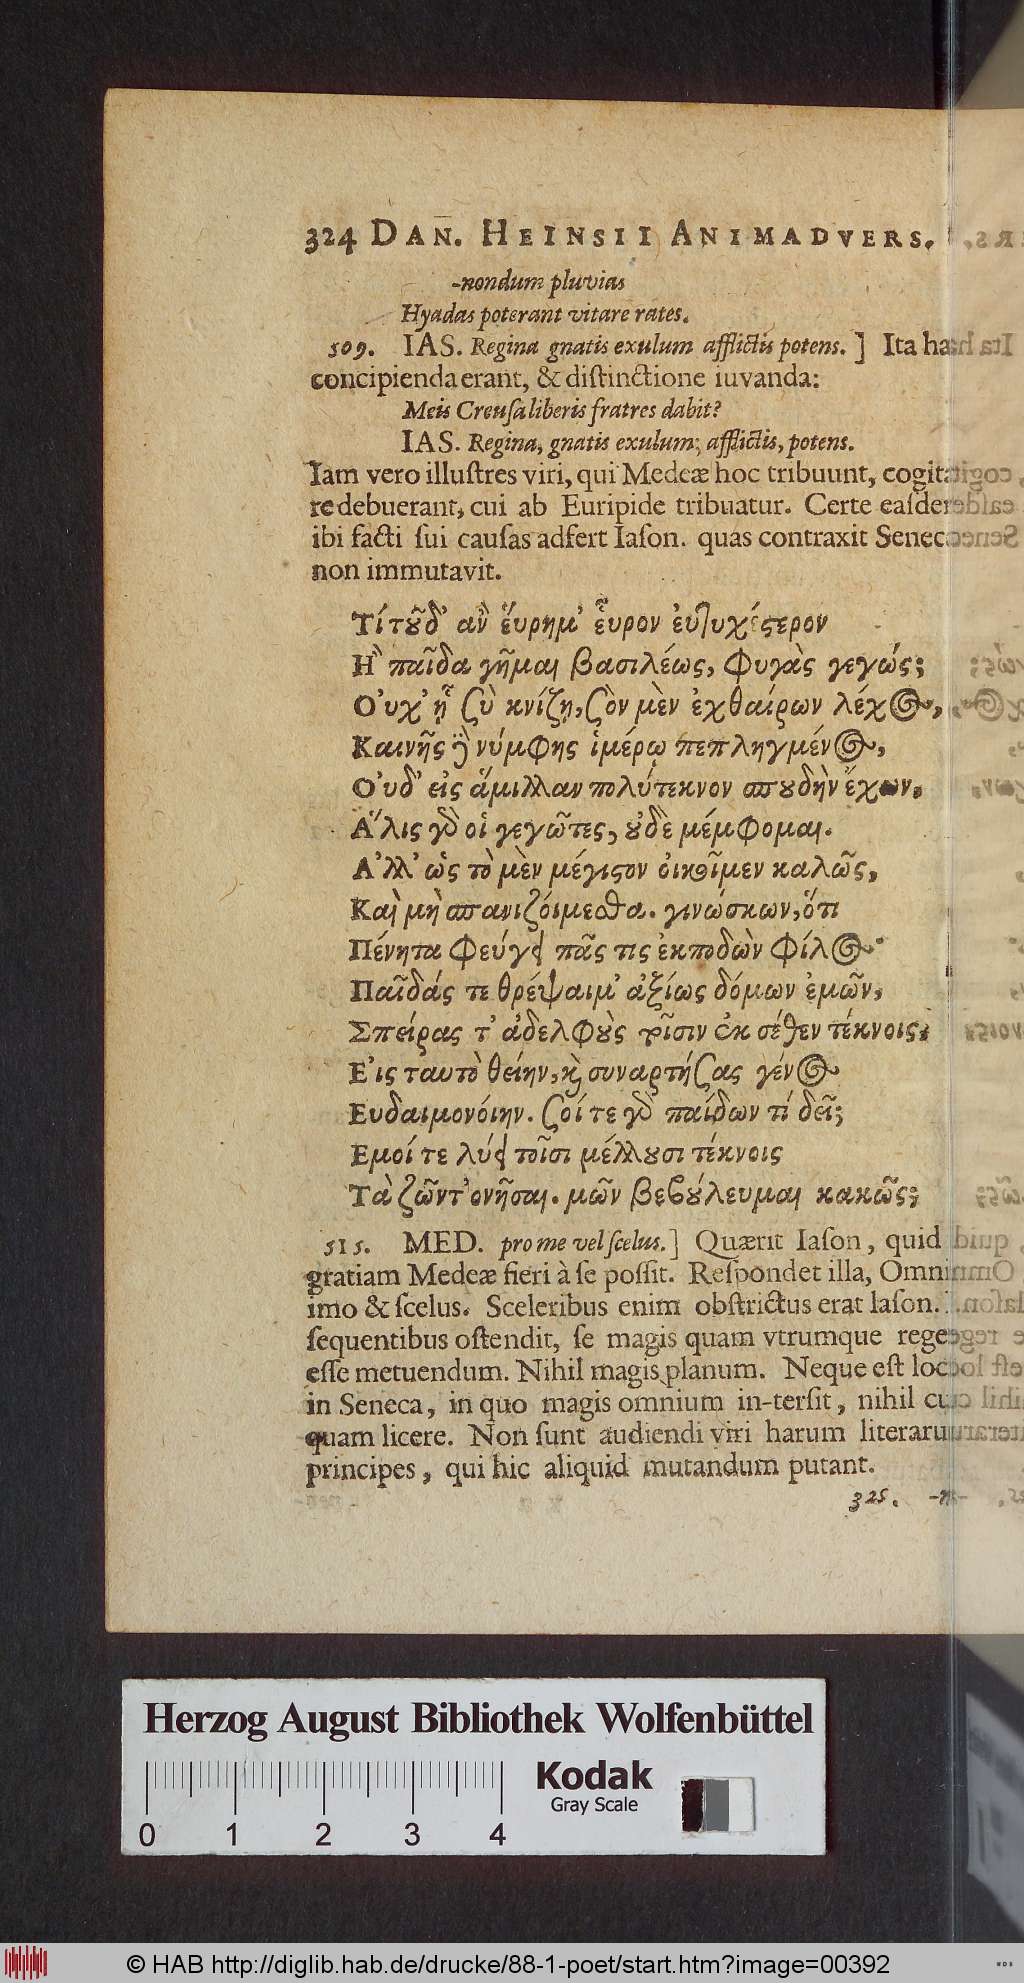 324 DAN. HEINSII ANIMADVERS.
-nondum pluvias
Hyadas poterant vitare rates.
509. IAS. Regina gnatis exulum afflictis potens. ] Ita hæ
concipienda erant, & diſtinctione iuvanda:
Meis Creuſa liberis fratres dabit?
IAS. Regina, gnatis exulum; afflictis, potens.
Iam vero illuſtres viri, qui Medeæ hoc tribuunt, cogita
re debuerant, cui ab Euripide tribuatur. Certe eaſdem
ibi facti ſui cauſas adfert Iaſon. quas contraxit Seneca
non immutavit.
Τί τοῦδ' ἂν ἕυρημ' ἧυρον ἐυτυχέστερον
Ἢ παῖδα γῆμαι βασιλέως, φυγὰς γεγώς;
Οὐχ' ᾗ σὺ κνίζῃ, σὸν μὲν ἐχθαίρων λέχος,
Καινῆς δὲ νύμφης ἱμέρῳ πεπληγμένος,
Οὐδ' εἰς ἅμιλλαν πολύτεκνον σπουδὴν ἔχων,
Ἅλις γὸ οἱ γεγῶτες, οὐδὲ μέμφομαι.
Ἀλλ' ὡς τὸ μὲν μέγιστον οἰκοῖμεν καλῶς,
Καὶ μὴ σπανιζόιμεσθα. γινώσκων, ὅτι
Πένητα φεύγει πᾶς τις ἐκποδὼν φίλος·
Παῖδάς τε θρέψαιμ' ἀξίως δόμων ἐμῶν,
Σπείρας τ' ἀδελφοὺς τοῖσιν ἐκ σέθεν τέκνοις;
Ἐις ταυτὸ θείην, καὶ συναρτήσας γένος
Ευδαιμονόιην. σοί τε γὸ παίδων τί δεῖ;
Εμοί τε λύει τοῖσι μέλλουσι τέκνοις
Τὰ ζῶντ' ονῆσαι. μῶν βεβούλευμαι κακῶς;
515. MED. pro me vel ſcelus. ] Quærit Iaſon, quid
gratiam Medeæ fieri à ſe poſſit. Reſpondet illa, Omni
imo & ſcelus. Sceleribus enim obſtrictus erat Iaſon.
ſequentibus oſtendit, ſe magis quam vtrumque rege
eſſe metuendum. Nihil magis planum. Neque eſt loc
in Seneca, in quo magis omnium in-terſit, nihil cu
quam licere. Non ſunt audiendi viri harum literaru
principes, qui hic aliquid mutandum putant.
325.
Herzog August Bibliothek Wolfenbüttel
Kodak
Gray Scale
0 1 2 3 4
© HAB http://diglib.hab.de/drucke/88-1-poet/start.htm?image=00392